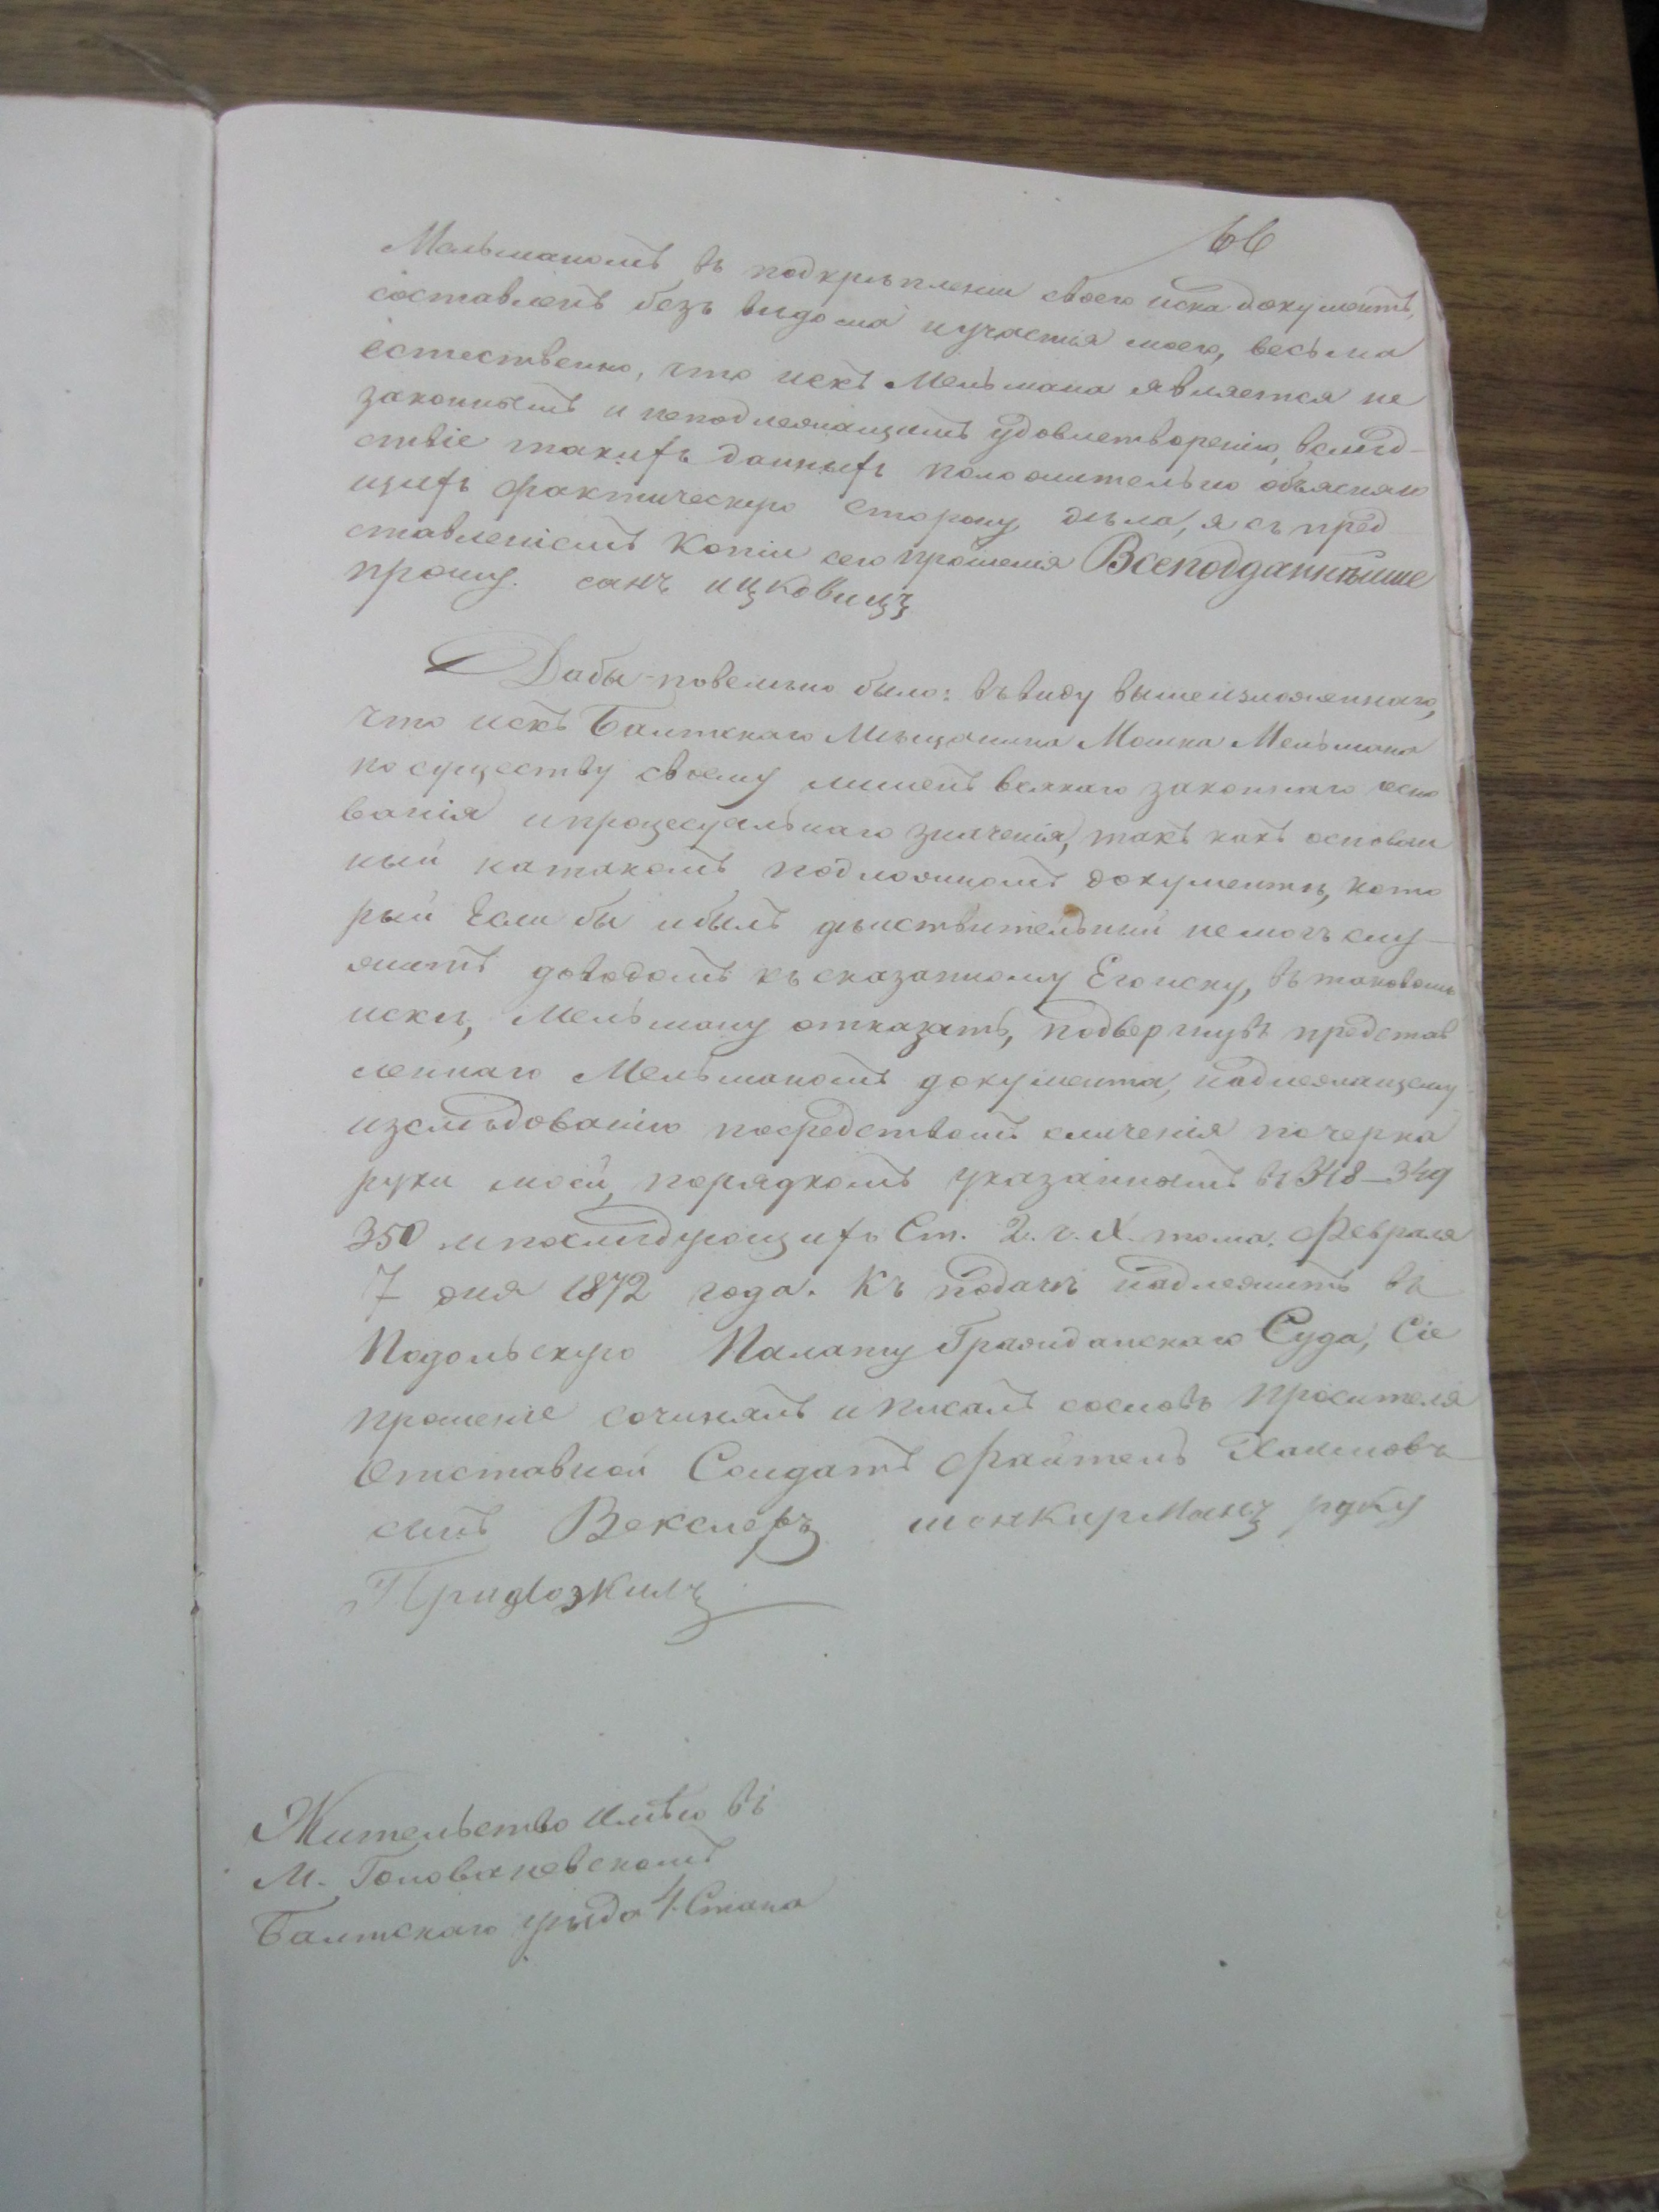 66
Мельманомъ въ подкрѣпленіи своего иска документъ,
составленъ безъ вѣдома и участія моего, весьма
естественно, что искъ Мельмана является не
законнымъ и неподлежащимъ удовлетворенію, вслѣд-
ствіе такихъ данныхъ положительно объясняю
щихъ фактическую сторону дѣла, я съ пред
ставленіемъ Копіи сего прошенія Всеподданнѣише
прошу. санъ ицковицъ
Дабы повелѣно было: въ виду вышеизложеннаго,
что искъ Балтскаго Мѣщанина Мошка Мельмана
по существу своему лишенъ всякаго законнаго осно
ванія и процесуальнаго значенія, такъ какъ основан
ный на такомъ подложномъ документѣ, кото
рый Если бы и былъ дѣиствительный не могъ слу-
жить доводомъ къ сказанному Его иску, въ таковомъ
искѣ, Мельману отказать, подвергнувъ представ
леннаго Мельманомъ документа, надлежащему
изслѣдованію посредствомъ сличенія почерка
руки моей, порядкомъ указаннымъ въ 348–349
350 и послѣдующихъ Ст. 2. ч. X. тома. Февраля
7 дня 1872 года. Къ подачѣ надлежитъ въ
Подольскую Палату Гражданскаго Суда, Сіе
прошеніе сочинялъ и писалъ сословъ просителя
Отставной Солдатъ Файтель Хаимовъ
сынъ Векслеръ шенкирманъ руку
Приложилъ
Жительство Имѣю въ
М. Голованевскомъ
Балтскаго уѣзда 4 Стана